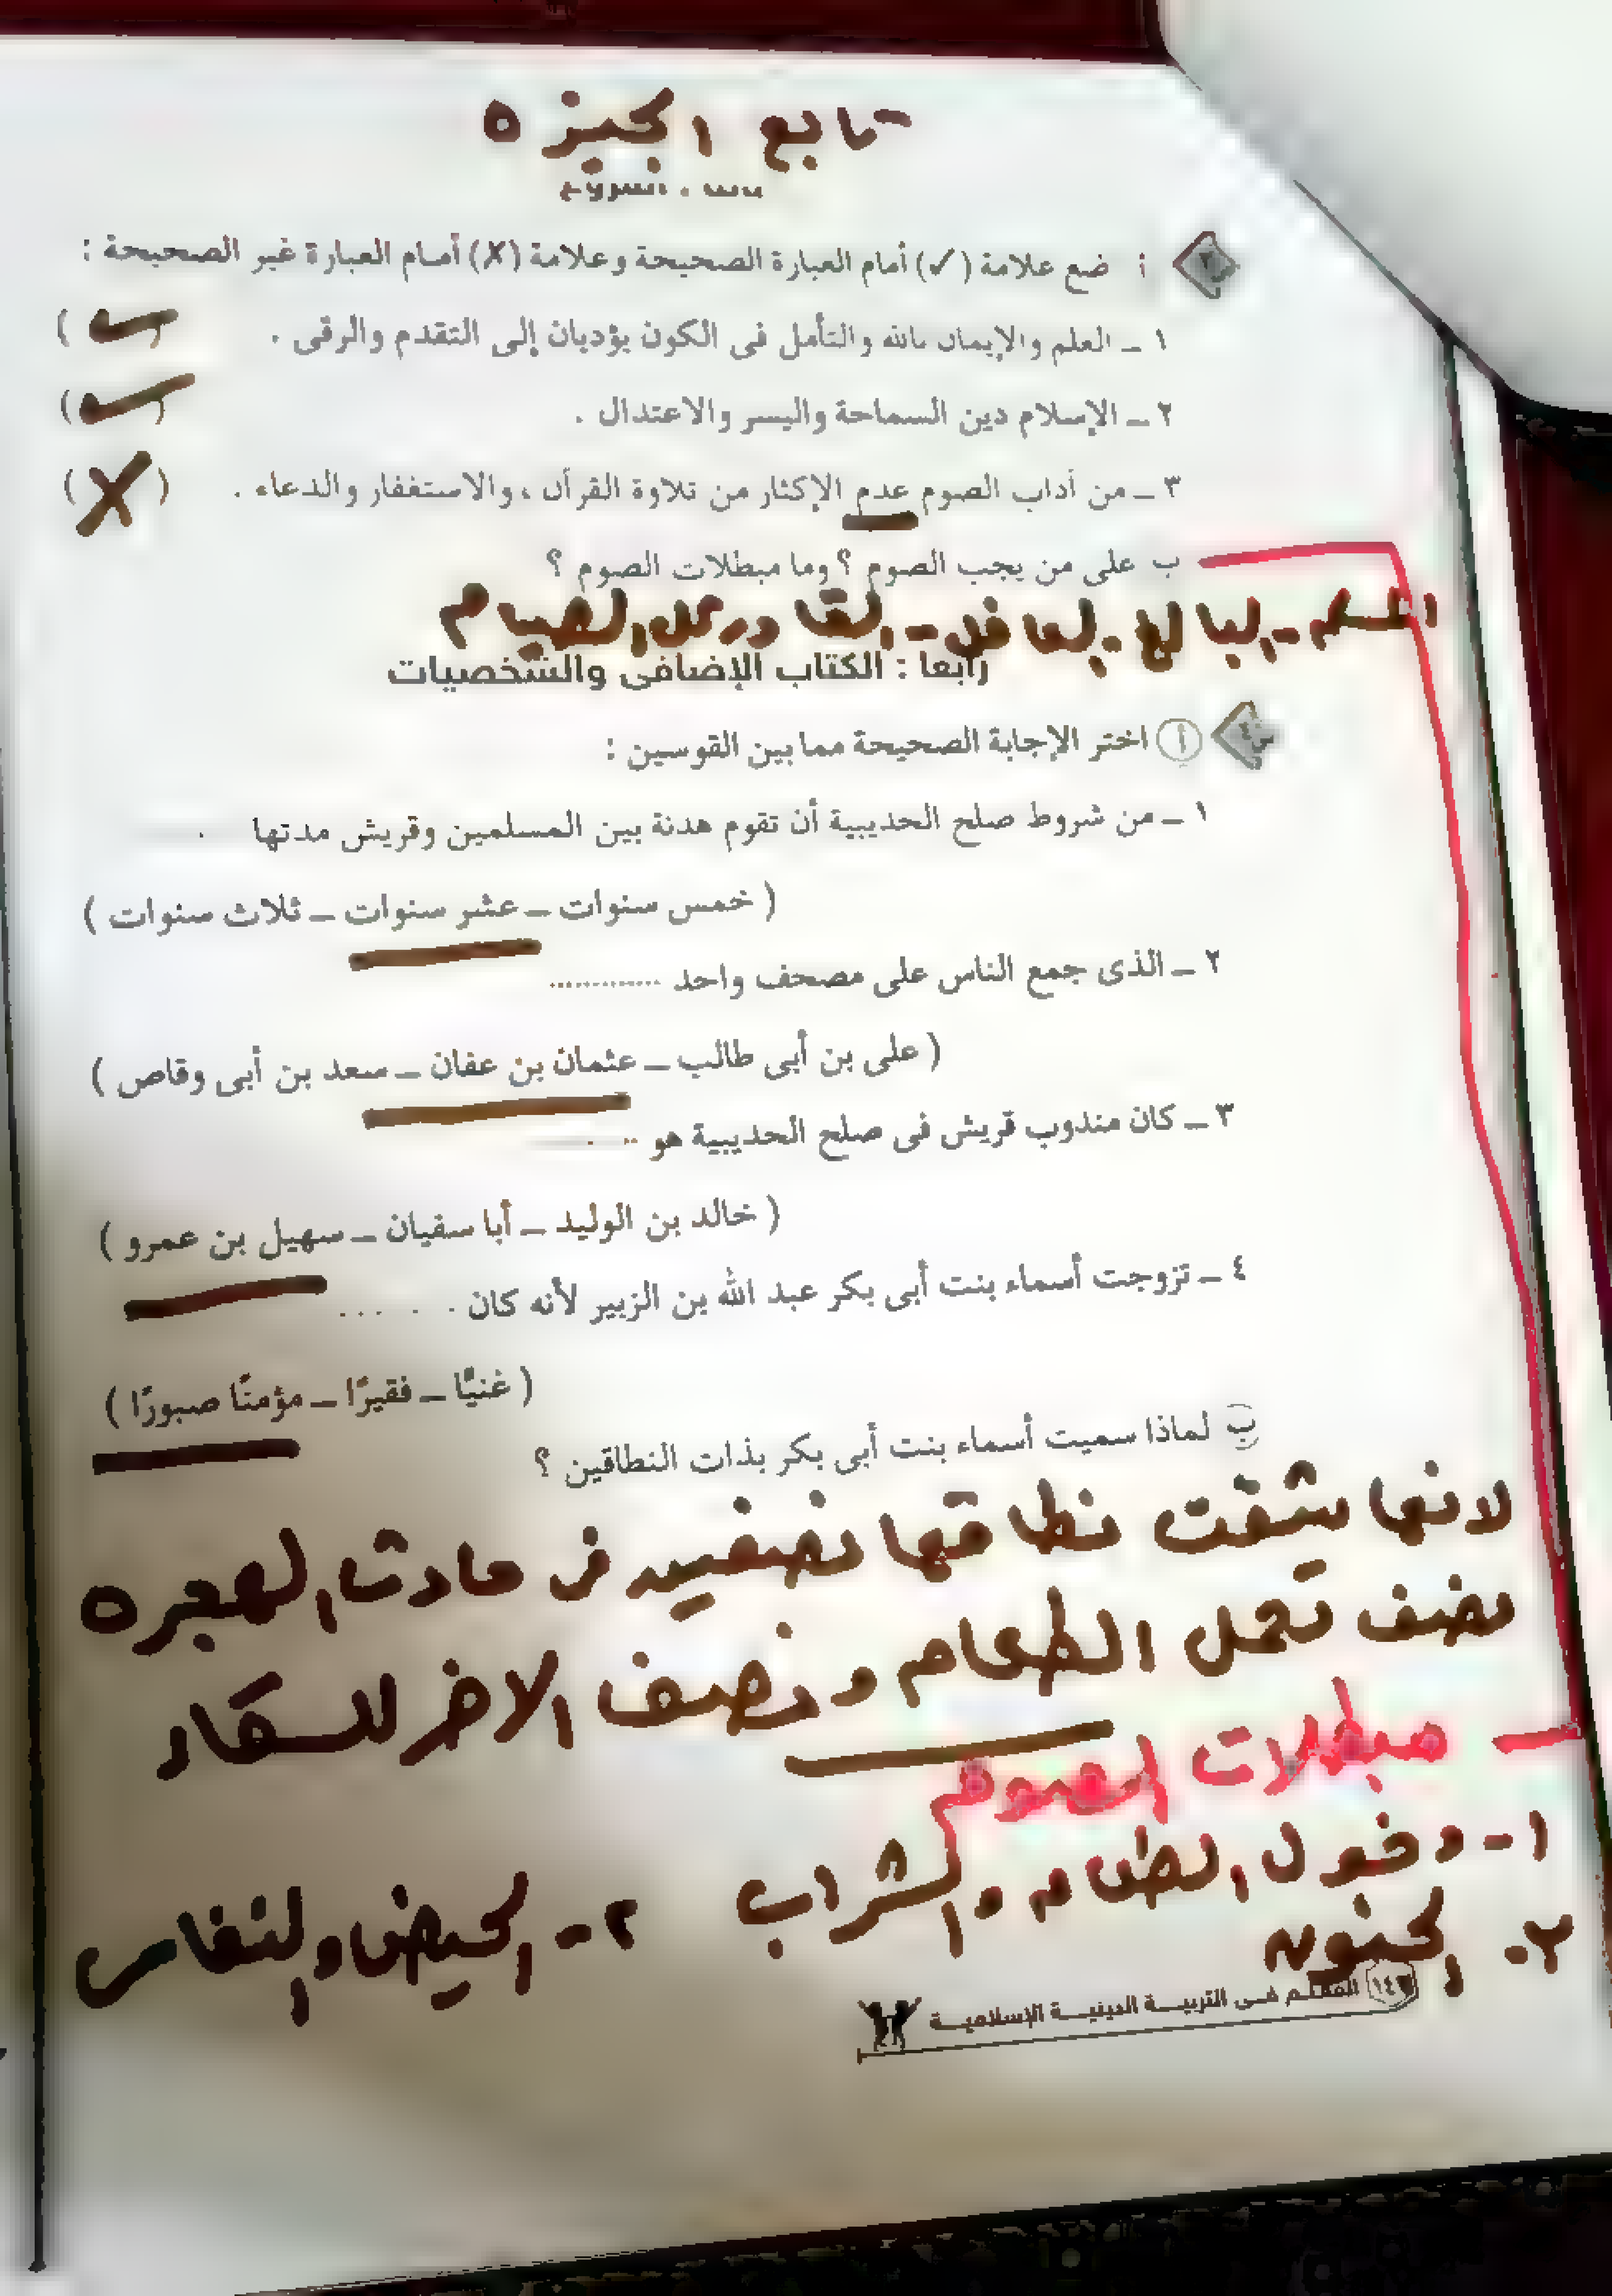 تابع الجيزه
أ ضع علامة (✓) أمام العبارة الصحيحة وعلامة (✗) أمام العبارة غير الصحيحة :
١ ــ العلم والإيمان بالله والتأمل فى الكون يؤديان إلى التقدم والرقى . (✓)
٢ ــ الإسلام دين السماحة واليسر والاعتدال . (✓)
٣ ــ من آداب الصوم عدم الإكثار من تلاوة القرآن ، والاستغفار والدعاء . (✗)
ب على من يجب الصوم ؟ وما مبطلات الصوم ؟
المسلم - البالغ - العاقل - القادر على الصيام
رابعا : الكتاب الإضافى والشخصيات
س٤ أ اختر الإجابة الصحيحة مما بين القوسين :
١ ــ من شروط صلح الحديبية أن تقوم هدنة بين المسلمين وقريش مدتها .
( خمس سنوات ــ عشر سنوات ــ ثلاث سنوات )
٢ ــ الذى جمع الناس على مصحف واحد .............
( على بن أبى طالب ــ عثمان بن عفان ــ سعد بن أبى وقاص )
٣ ــ كان مندوب قريش فى صلح الحديبية هو ...
( خالد بن الوليد ــ أبا سفيان ــ سهيل بن عمرو )
٤ ــ تزوجت أسماء بنت أبى بكر عبد الله بن الزبير لأنه كان . . . . .
( غنيًا ــ فقيرًا ــ مؤمنًا صبورًا )
ب لماذا سميت أسماء بنت أبى بكر بذات النطاقين ؟
لانها شقت نطاقها نصفين فى حادث الهجره
نصف تحمل الطعام ونصف الاخر للسقاء
مبطلات الصوم
١- دخول الطعام والشراب ٢- الحيض والنفاس
٣- الجنون
١٤٢ المعلم فى التربيـة الدينيـة الإسلاميـة